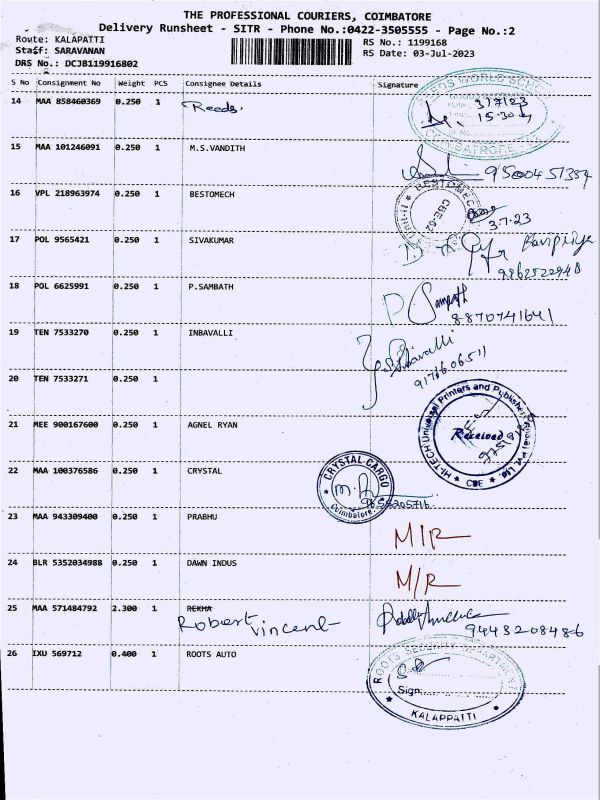 THE PROFESSIONAL COURIERS, COIMBATORE
Delivery Runsheet - SITR - Phone No.:0422-3505555 - Page No.:2
Route: KALAPATTI RS No.: 1199168
Staff: SARAVANAN RS Date: 03-Jul-2023
DRS No.: DCJB119916802
S No Consignment No Weight PCS Consignee Details Signature
14 MAA 858460369 0.250 1 Reeds. 3/7/23
15.30
15 MAA 101246091 0.250 1 M.S.VANDITH
16 VPL 218963974 0.250 1 BESTOMECH BESTOMECH CBE-02 3.7.23
17 POL 9565421 0.250 1 SIVAKUMAR
9862522948
18 POL 6625991 0.250 1 P.SAMBATH P Sampath
8870741641
19 TEN 7533270 0.250 1 INBAVALLI
9171606511
20 TEN 7533271 0.250 1
21 MEE 900167600 0.250 1 AGNEL RYAN HI-TECH Universal Printers and Publisher Pvt. Ltd. CBE
Received
22 MAA 100376586 0.250 1 CRYSTAL CRYSTAL CARGO Coimbatore.
23 MAA 943309400 0.250 1 PRABHU M/R
24 BLR 5352034988 0.250 1 DAWN INDUS M/R
25 MAA 571484792 2.300 1 REKHA
Robert Vincent 9443208486
26 IXU 569712 0.400 1 ROOTS AUTO ROOTS SECURITY DEPARTMENT
Sign
KALAPPATTI